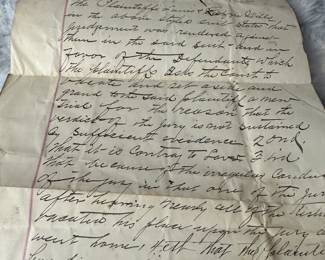 The Plaintiffs James
in the above styled suit state that
judgement was rendered against
them in the said suit and in
favor of the Defendants, Wish
The plaintiffs Asks the Court to
vacate and set aside and
grant to the said plaintiffs a new
Trial for the reason that the
verdict of the Jury is not sustained
by sufficeent evidence 2ond
That it is Contrary to Law 3ird
that because of the irregular Conduct
of the Jury in that one of the Jurors
after hearing nearly all of the testi
vacated his place upon the jury a
went home, 4th that the plaintif